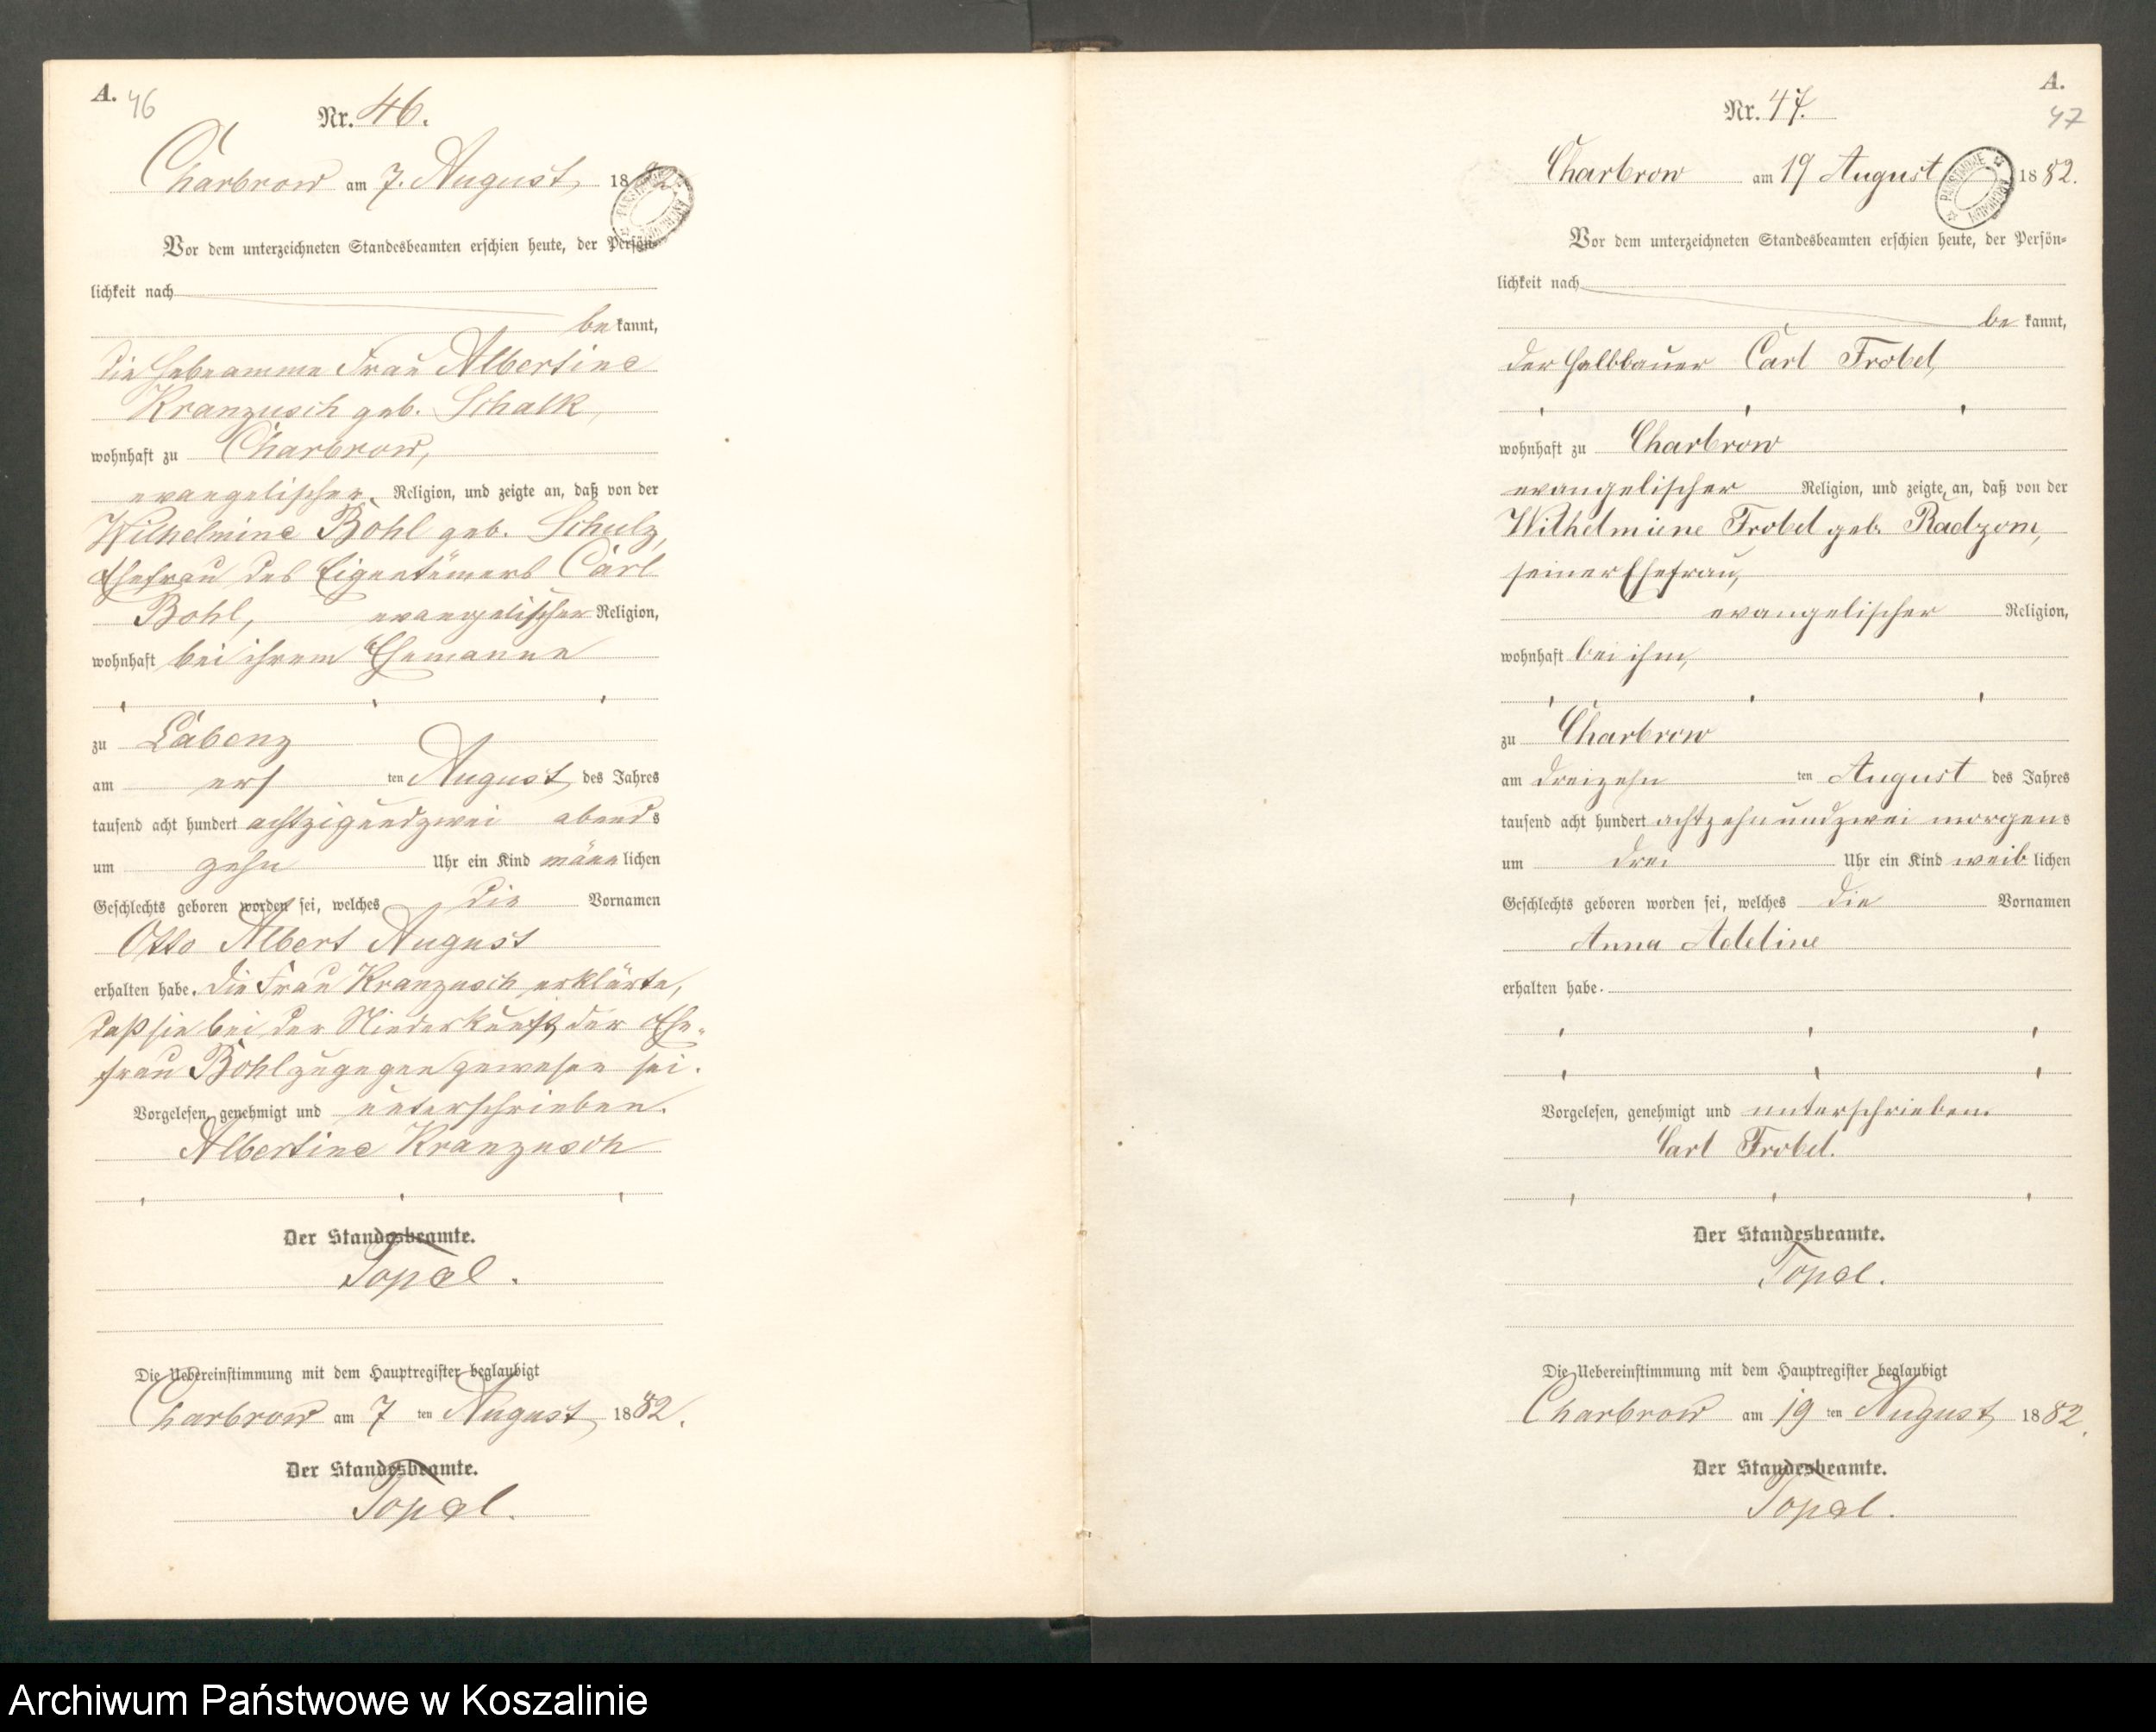 A. 46
Nr. 46.
Charbrow am 7. August 1882
Vor dem unterzeichneten Standesbeamten erschien heute, der Persön-
lichkeit nach
bekannt,
die Hebeamme Frau Albertine
Kranzusch geb. Schalk,
wohnhaft zu Charbrow,
evangelischer Religion, und zeigte an, daß von der
Wilhelmine Bohl geb. Schulz,
Ehefrau des Eigentümers Carl
Bohl, evangelischer Religion,
wohnhaft bei ihrem Ehemanne
zu Labenz
am ersten August des Jahres
tausend acht hundert achtzigundzwei abends
um zehn Uhr ein Kind männlichen
Geschlechts geboren worden sei, welches die Vornamen
Otto Albert August
erhalten habe. Die Frau Kranzusch erklärte,
daß sie bei der Niederkunft der Ehe-
frau Bohl zugegen gewesen sei.
Vorgelesen, genehmigt und unterschrieben.
Albertine Kranzusch
Der Standesbeamte.
Topel.
Die Uebereinstimmung mit dem Hauptregister beglaubigt
Charbrow am 7ten August 1882.
Der Standesbeamte.
Topel.
A.
47
Nr. 47.
Charbrow am 19 August 1882.
Vor dem unterzeichneten Standesbeamten erschien heute, der Persön-
lichkeit nach
bekannt,
der Halbbauer Carl Frobel,
wohnhaft zu Charbrow
evangelischer Religion, und zeigte an, daß von der
Wilhelmiene Frobel geb. Radzom,
seiner Ehefrau,
evangelischer Religion,
wohnhaft bei ihm,
zu Charbrow
am dreizehnten August des Jahres
tausend acht hundert achtzehnundzwei morgens
um drei Uhr ein Kind weiblichen
Geschlechts geboren worden sei, welches die Vornamen
Anna Adeline
erhalten habe.
Vorgelesen, genehmigt und unterschrieben.
Carl Frobel.
Der Standesbeamte.
Topel.
Die Uebereinstimmung mit dem Hauptregister beglaubigt
Charbrow am 19ten August 1882.
Der Standesbeamte.
Topel.
Archiwum Państwowe w Koszalinie